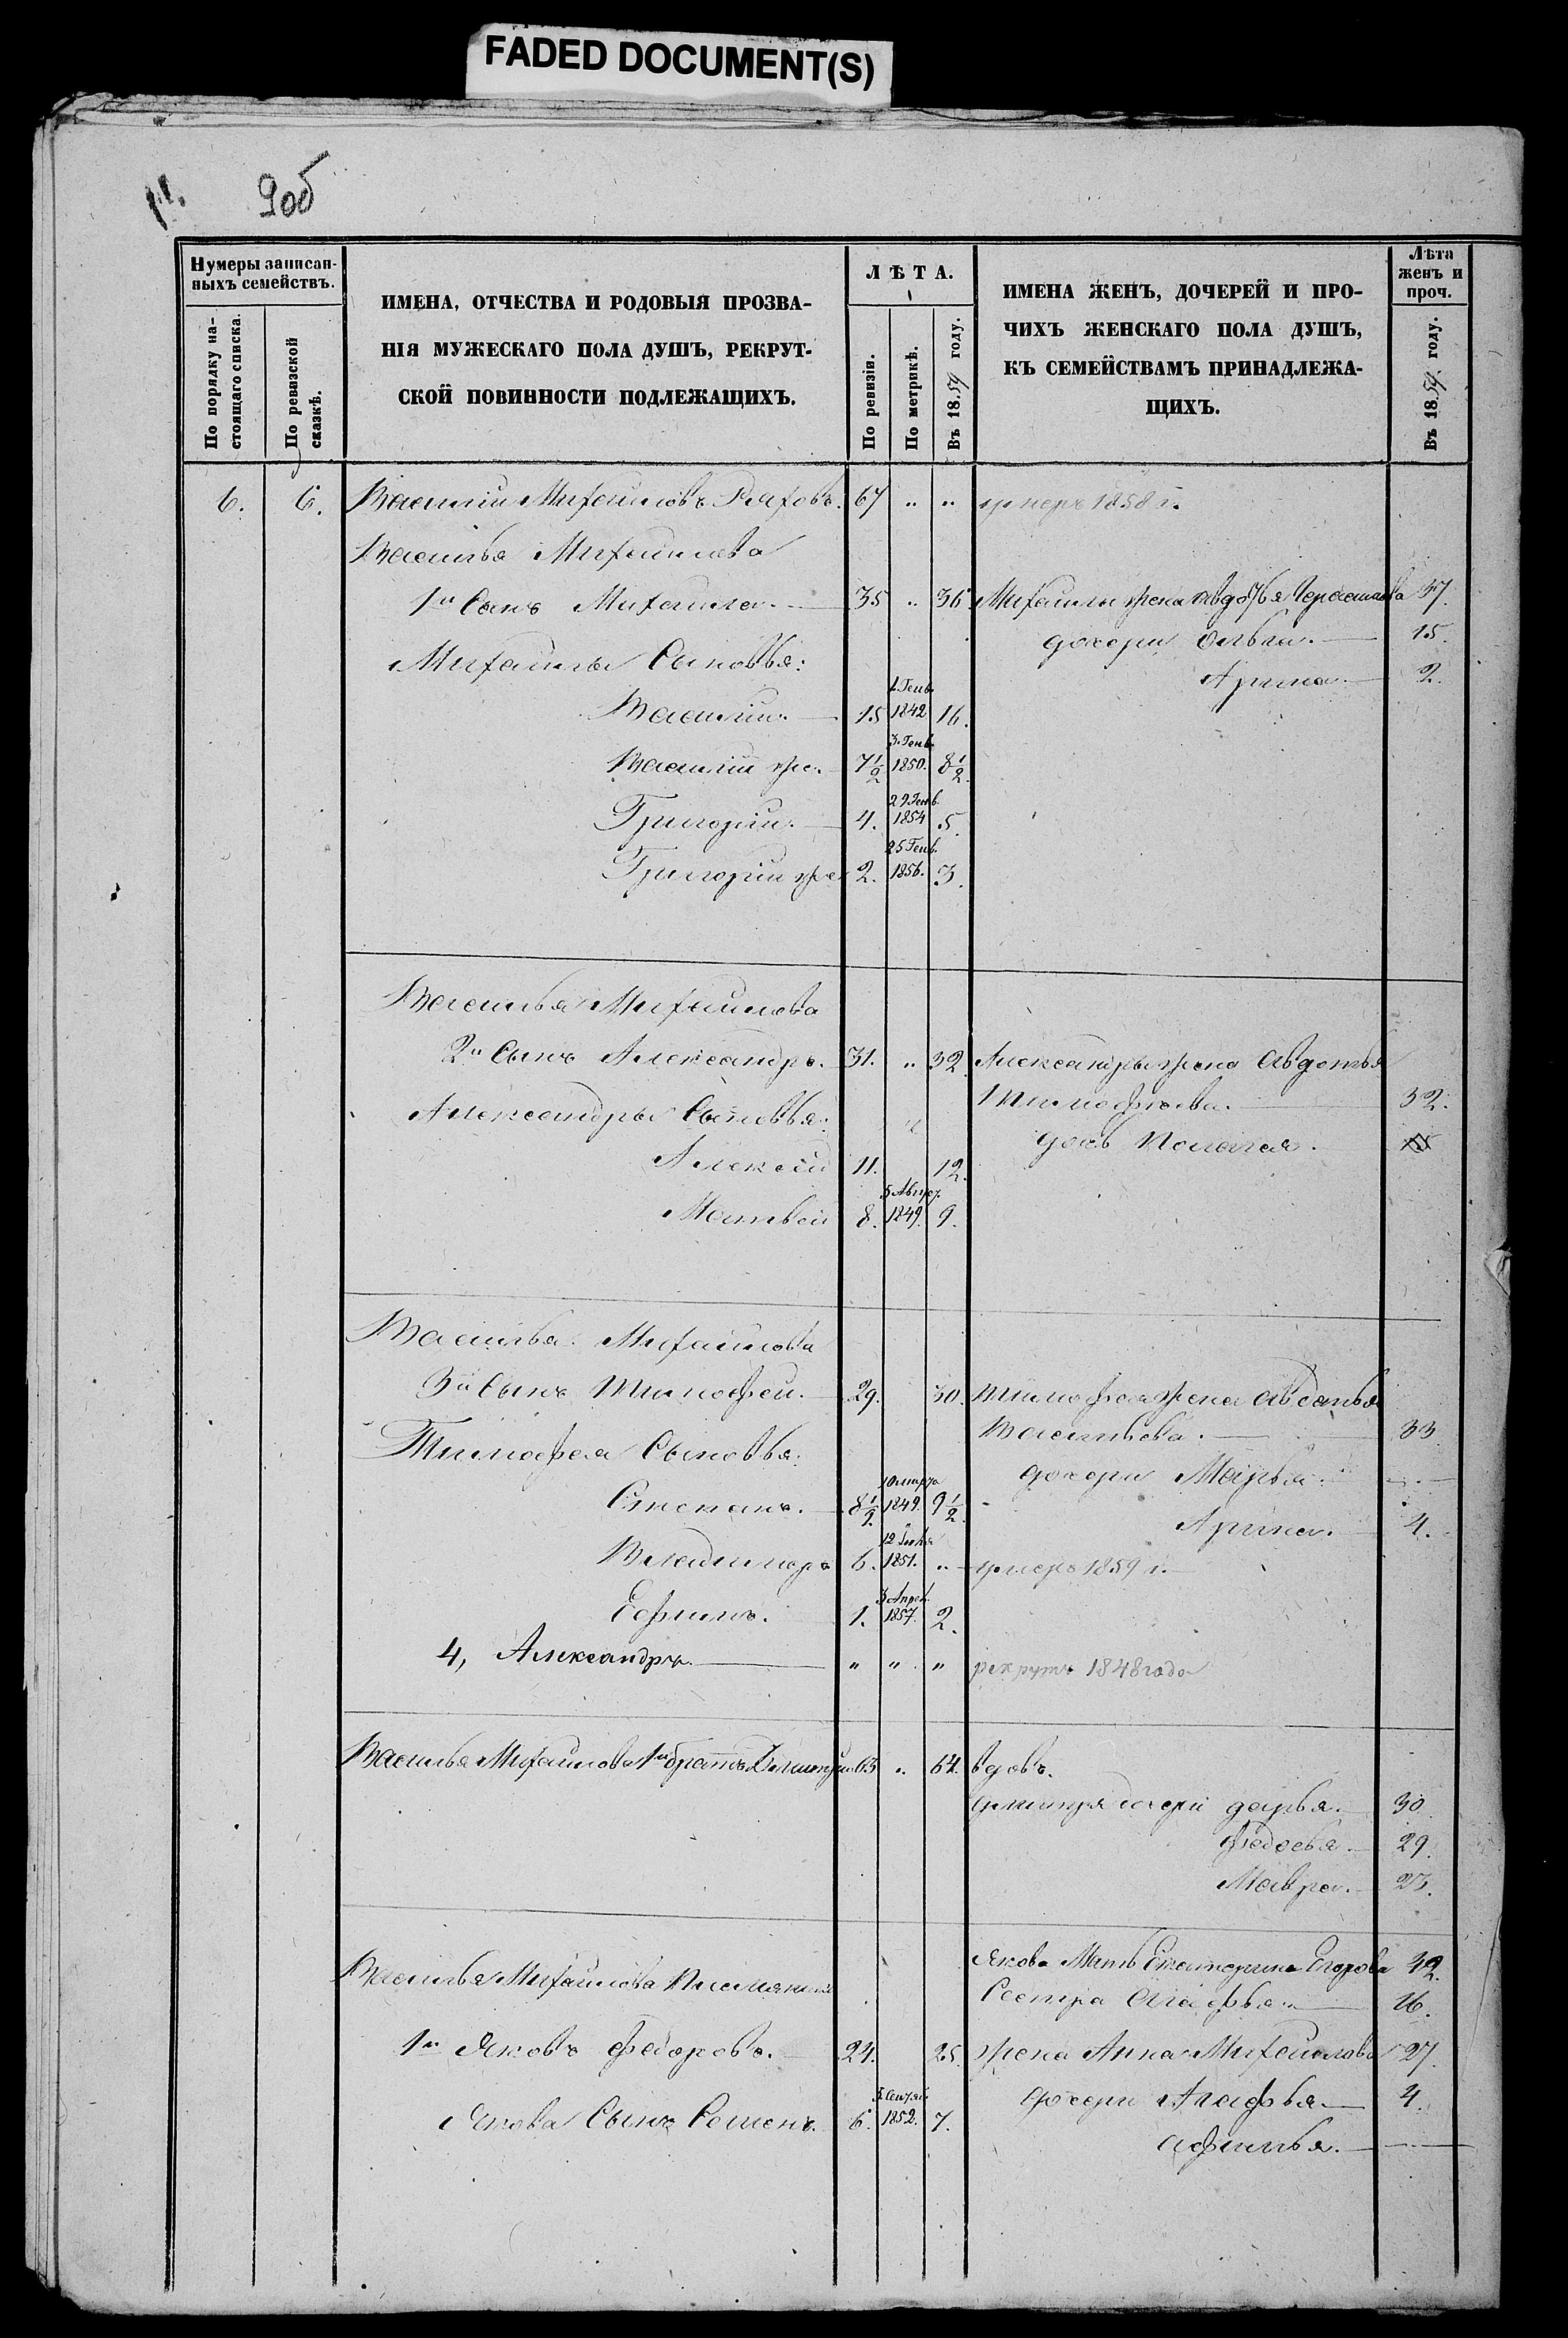 FADED DOCUMENT(S)
9об
Нумеры записан-
ныхъ семействъ.
По порядку на-
стоящаго списка.
По ревизской
сказкѣ.
ИМЕНА, ОТЧЕСТВА И РОДОВЫЯ ПРОЗВА-
НІЯ МУЖЕСКАГО ПОЛА ДУШЪ, РЕКРУТ-
СКОЙ ПОВИННОСТИ ПОДЛЕЖАЩИХЪ.
ЛѢТА.
По ревизіи.
По метрикѣ.
Въ 1859 году.
ИМЕНА ЖЕНЪ, ДОЧЕРЕЙ И ПРО-
ЧИХЪ ЖЕНСКАГО ПОЛА ДУШЪ,
КЪ СЕМЕЙСТВАМЪ ПРИНАДЛЕЖА-
ЩИХЪ.
Лѣта
женъ и
проч.
Въ 1859 году.
6. 6. Василій Михайловъ 67 " " умеръ 1858 г.
Василья Михайлова
1й Сынъ Михайла. 35 " 36 Михайлы жена 37.
дочери Ольга. 15.
Михайлы Сыновья:
Арина. 2.
Василій. 15 1 Генв. 1842 16.
Василій же. 7½ 3. Генв. 1850. 8½.
Григорій. 4. 29 Генв. 1854 5.
Григорій же 2. 25 Генв. 1856. 3.
Василья Михайлова
2й Сынъ Александръ. 31. " 32 Александры жена Авдотья
Тимофѣева. 32.
Александры Сыновья:
дочь Полагея.
Алексѣй 11. 12.
Матвѣй 8. 5 Август. 1849. 9.
Василья Михайлова
3й Сынъ Тимофей. 29. 30. Тимофея жена Авдотья
Васильева. 33
Тимофея Сыновья:
дочери Марья.
Степанъ. 8½ 10 марта 1849. 9½.
Арина. 4.
Владимиръ 6. 12 1851. " умеръ 1859 г.
Ефимъ. 1. 3 Апрел. 1857. 2.
4, Александръ. " " " рекрутъ 1848 года
Василья Михайлова 1й братъ Дмитрій 63 " 64. вдовъ.
Дмитрія дочери Дарья. 30
Федосья. 29.
Мавра. 23.
Якова Мать Екатерина Егорова 42.
Василья Михайлова Племянники
Сестра Агафья. 16.
1й Яковъ Федоровъ. 24. 25. жена Анна Михайлова 27.
дочери Агафья. 4.
Якова Сынъ Семенъ. 6. 1852. 7.
Афимья.